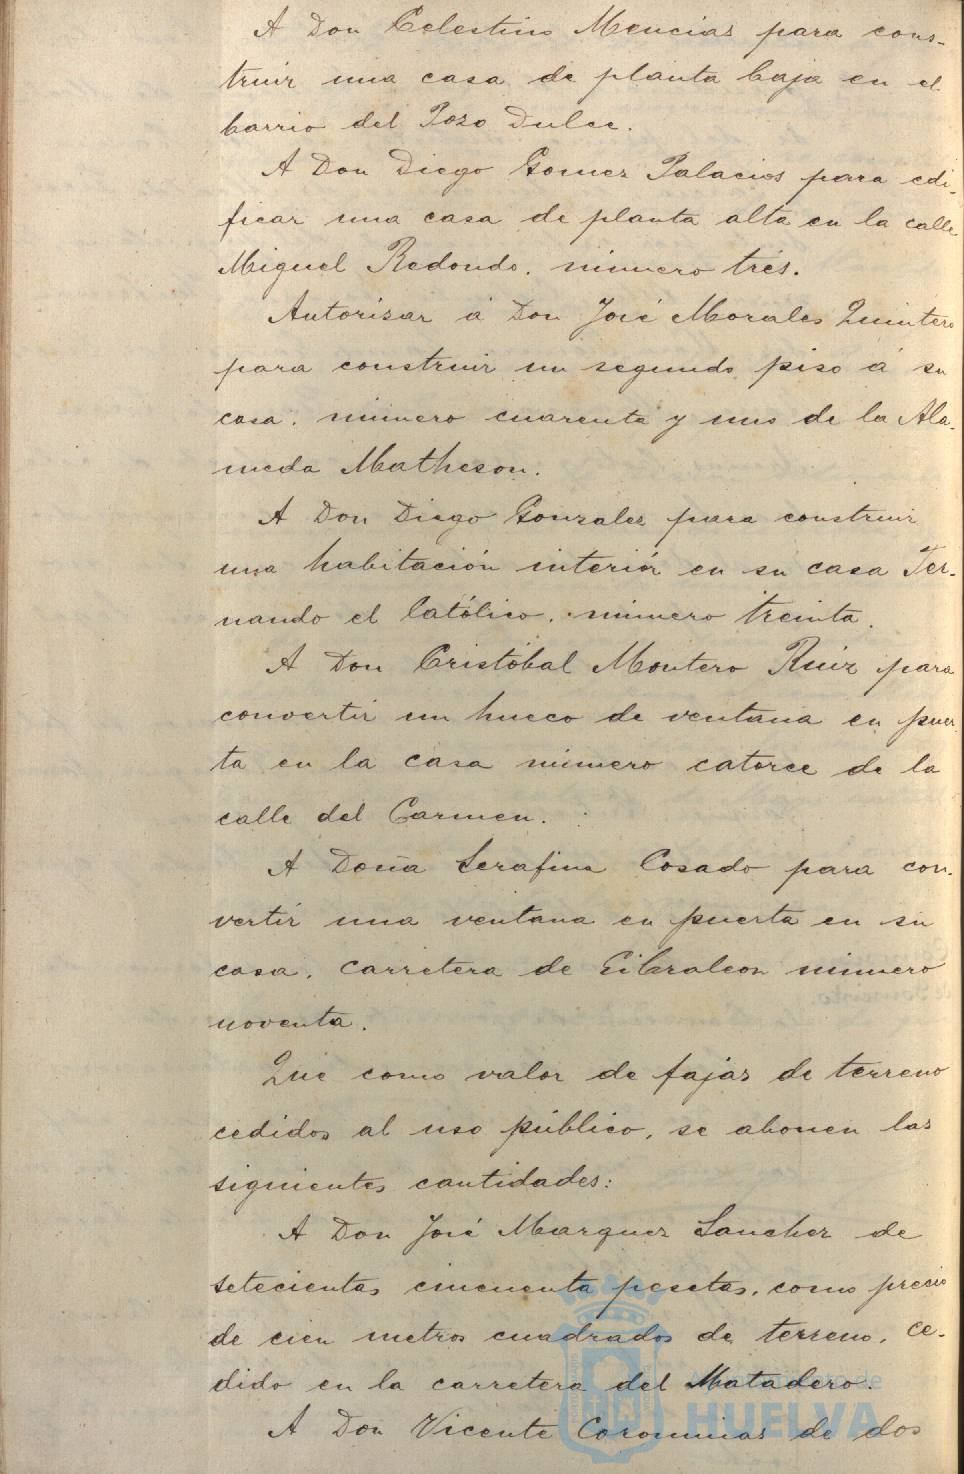 A Don Celestino Mencias para cons-
truir una casa de planta baja en el
barrio del Pozo Dulce.
A Don Diego Gomez Palacios para edi-
ficar una casa de planta alta en la calle
Miguel Redondo, número tres.
Autorizar á Don José Morales Quintero
para construir un segundo piso á su
casa, número cuarenta y uno de la Ala-
meda Matheson.
A Don Diego Gonzalez para construir
una habitación interiór en su casa Fer-
nando el Católico, número treinta.
A Don Cristóbal Montero Ruiz para
convertir un hueco de ventana en puer-
ta en la casa número catorce de la
calle del Carmen.
A Doña Serafina Cosado para con-
vertir una ventana en puerta en su
casa, carretera de Gibraleon número
noventa.
Que como valor de fajas de terreno
cedidos al uso público, se abonen las
siguientes cantidades:
A Don José Marquez Sanchez de
setecientas cincuenta pesetas, como precio
de cien metros cuadrados de terreno, ce-
dido en la carretera del Matadero.
A Don Vicente Corominas de dos
Ayuntamiento de
HUELVA